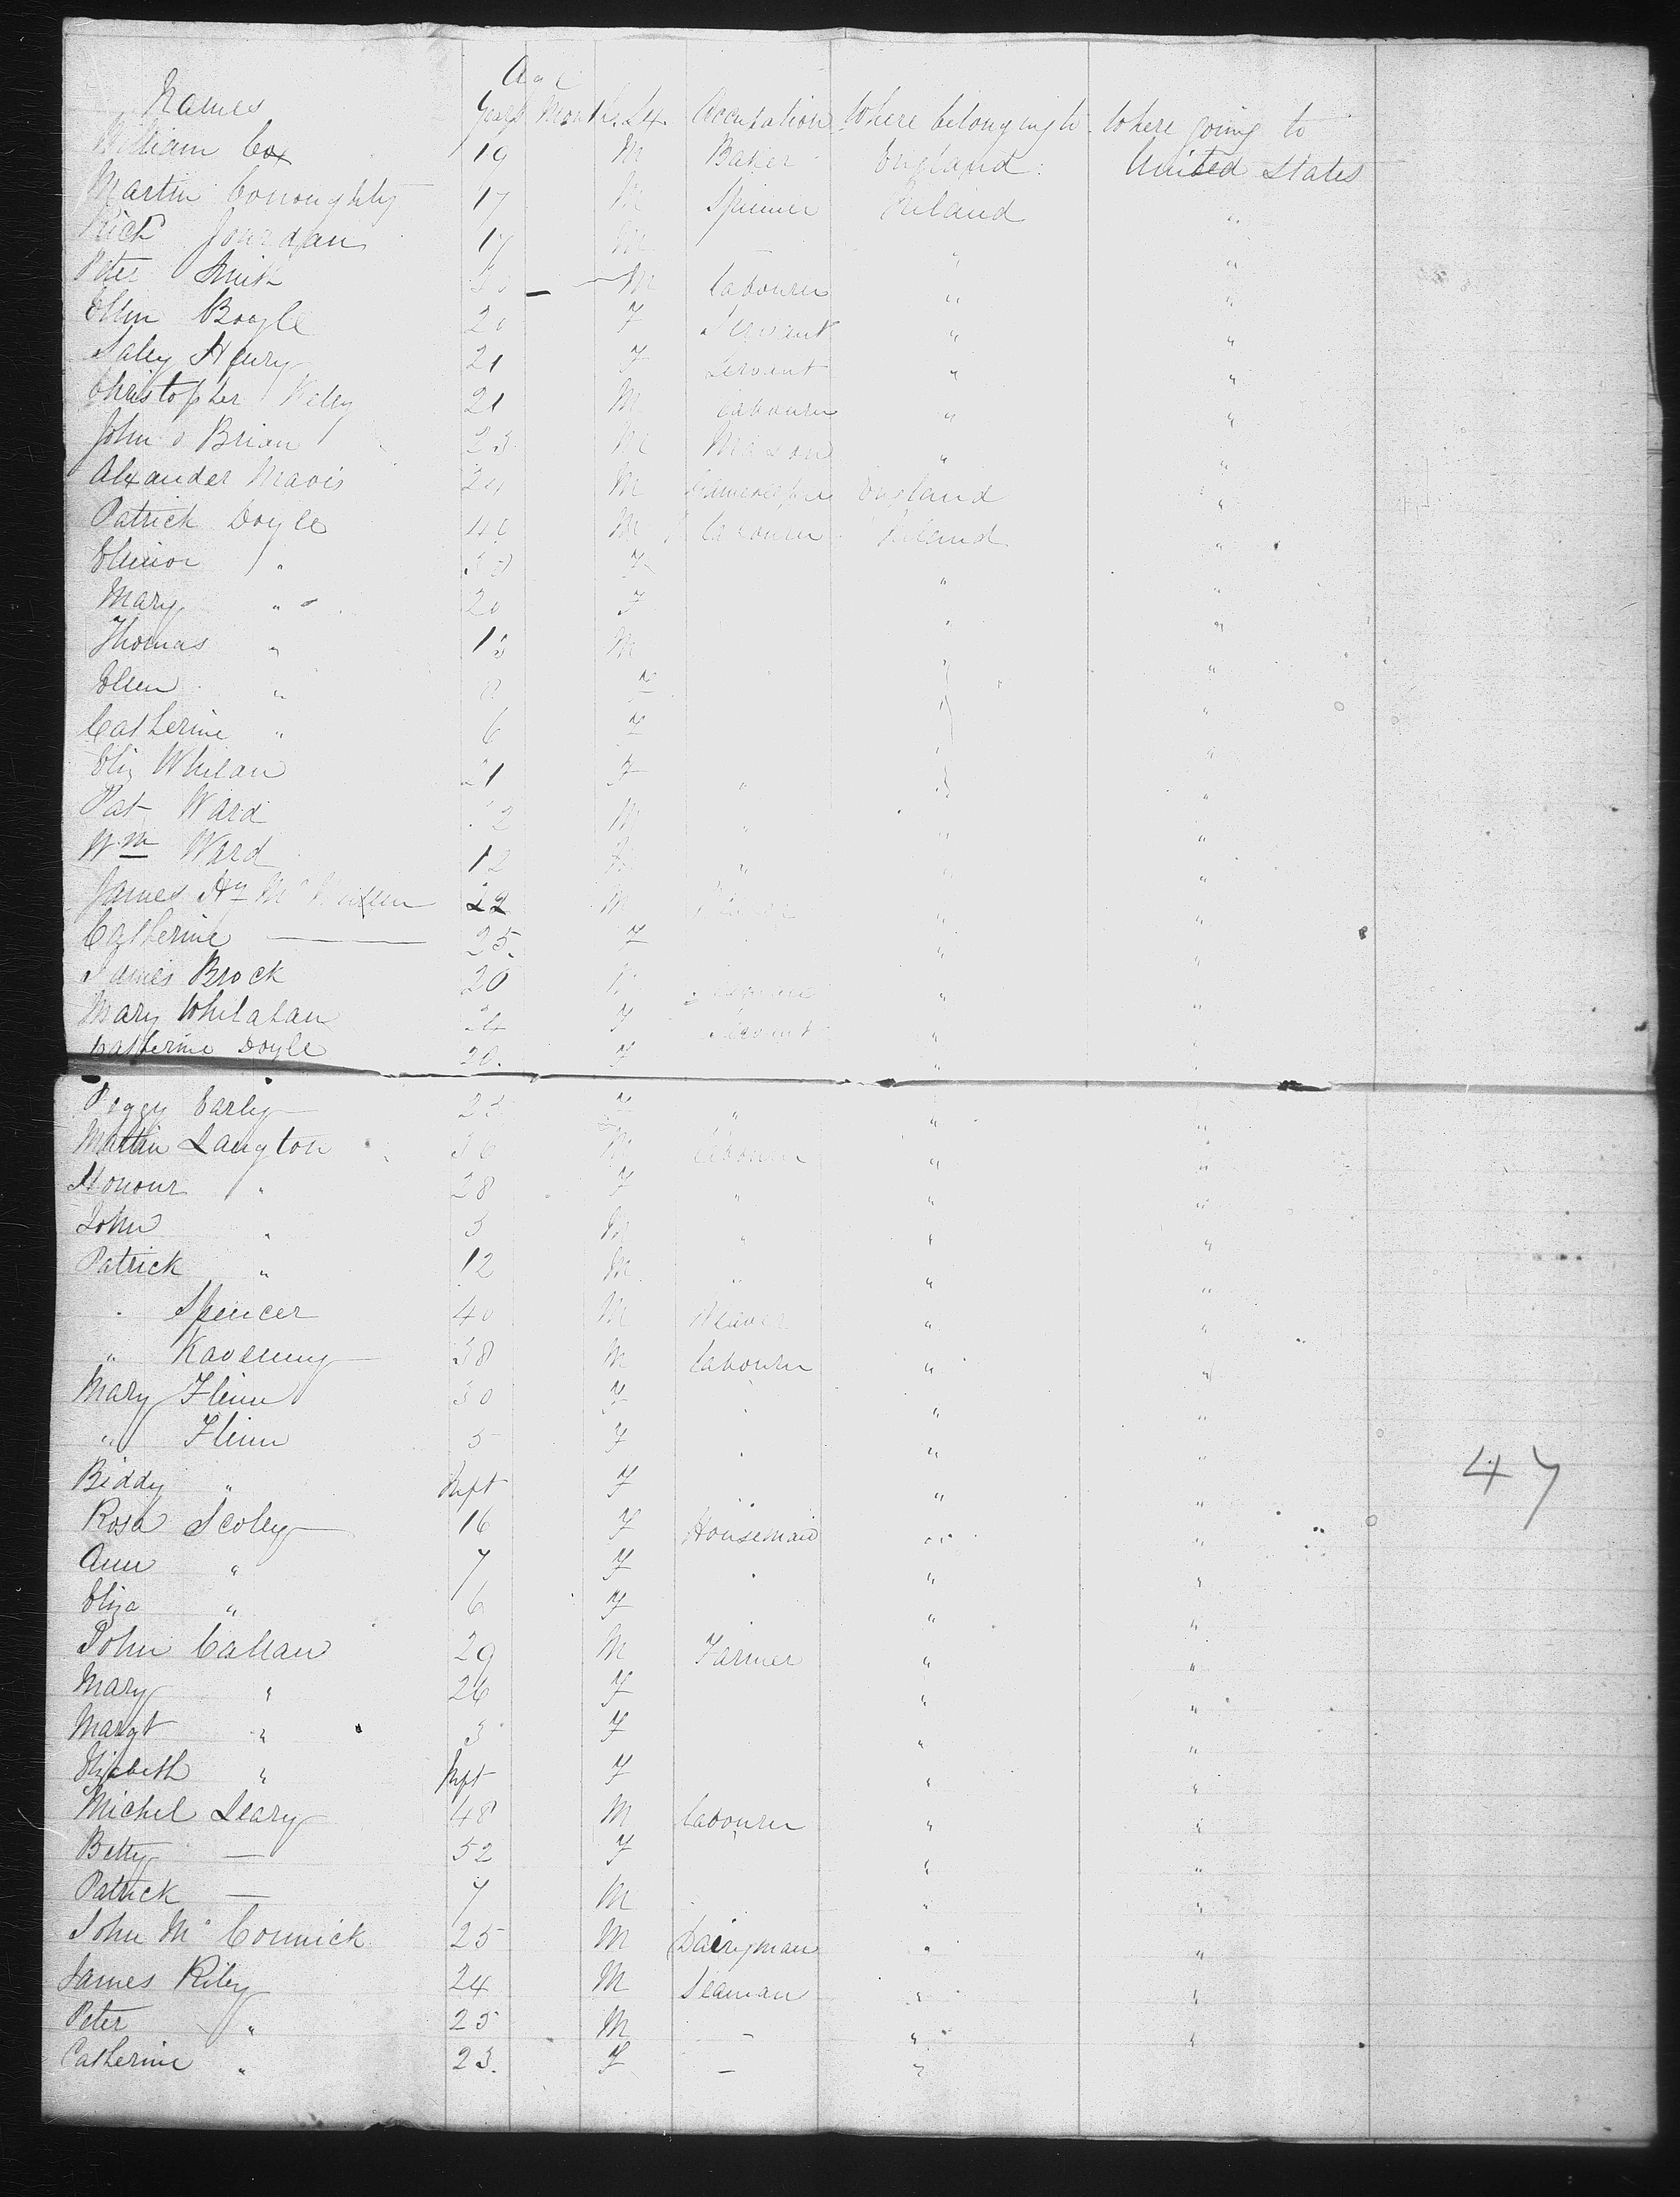 Age
Names Years Months Occupation Where belonging to Where going to
William Cox 19 M Baker England: United States
Martin Conoughty 17 M Spinner Ireland "
Richd Jourdan 17 M — " "
Peter Smith — M Labourer " "
Ellen Boyle 20 F Servant " "
Saley Henry 21 F Servant " "
Christopher Kelly 21 M Labourer " "
John o Brian 23 M Mason " "
Alexander Mavis 24 M Gamekeeper England "
Patrick Doyle M Labourer Ireland "
Elinior " F " "
Mary " 20 F " "
Thomas " 13 M " "
Ellen " 8 " "
Catherine " 6 F " "
Eliz Whelan 21 F " " "
Pat Ward 12 M " " "
Wm Ward 12 " " "
James Hy Mc 22 M " "
Catherine — 25. F " "
James Brock 20 " "
Mary Whelahan 24 F Servant " "
Catherine Doyle 20. F " "
Peggy Early 23 F " " "
Martin Langton 36 M Labourer " "
Honour " 28 F " " "
John " 3 M " " "
Patrick " 12 M " " "
" Spencer 40 M Weaver " "
" Kaveneny 38 M Labourer " "
Mary Flinn 30 F " " "
" Flinn 5 F " " "
Biddy " Inft F " " "
Rosa Scoley 16 F Housemaid " "
Ann " 7 F " " "
Eliza " 6 F " "
John Callan 29 M Farmer " "
Mary " 26 F " "
Margt " 3 F " "
Elizabeth " Inft F " "
Michel Leary 48 M Labourer " "
Betty — 52 F " "
Patrick — 7 M " "
John Mc Connick 25 M Dairyman " "
James Riley 24 M Seaman " "
Peter " 25 M — " "
Catherine " 23. F — "
47